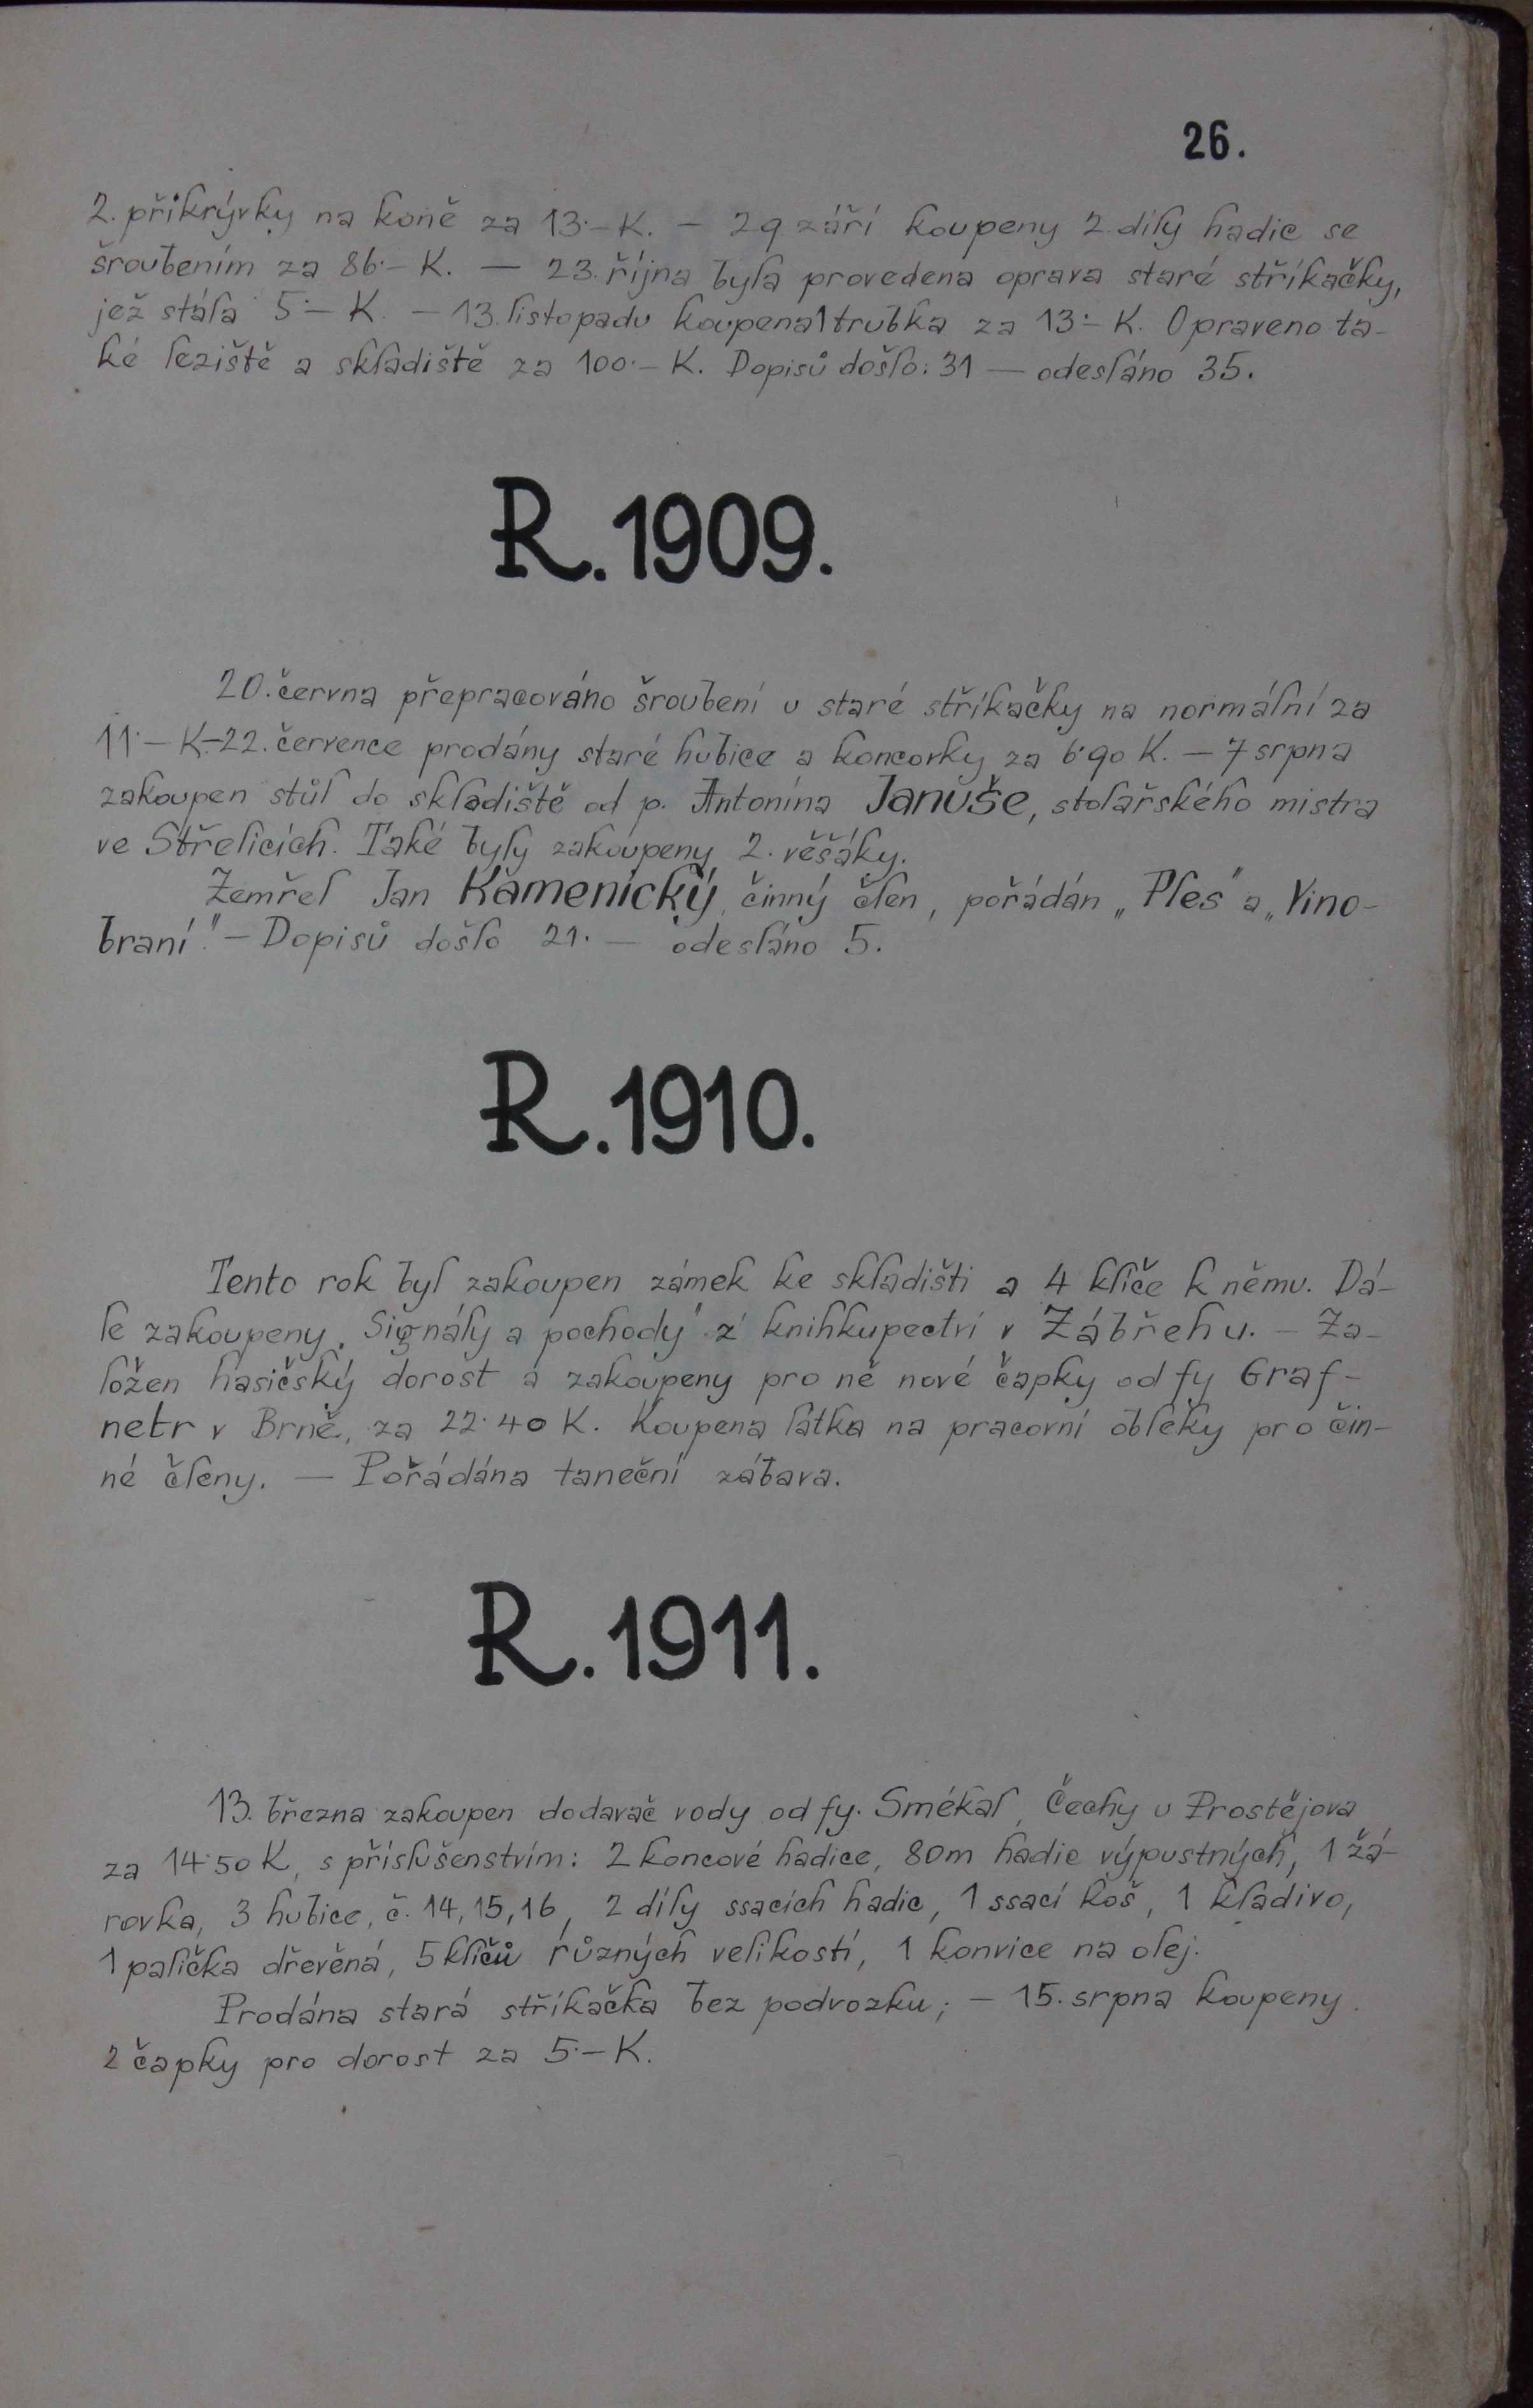 26.
2. přikrývky na koně za 13·– K. – 29 září koupeny 2 díly hadic se
šroubením za 86·– K. — 23. října byla provedena oprava staré stříkačky,
jež stála 5·– K. – 13. listopadu koupena 1 trubka za 13·– K. Opraveno ta-
ké leziště a skladiště za 100·– K. Dopisů došlo: 31 — odesláno 35.
R. 1909.
20. června přepracováno šroubení u staré stříkačky na normální za
11·– K.– 22. července prodány staré hubice a koncovky za 6·90 K. – 7 srpna
zakoupen stůl do skladiště od p. Antonína Januše, stolařského mistra
ve Střelicích. Také byly zakoupeny 2. věšáky.
Zemřel Jan Kamenický, činný člen, pořádán „Ples" a „Vino-
braní." – Dopisů došlo 21. — odesláno 5.
R. 1910.
Tento rok byl zakoupen zámek ke skladišti a 4 klíče k němu. Dá-
le zakoupeny „Signály a pochody" z knihkupectví v Zábřehu. – Za-
ložen hasičský dorost a zakoupeny pro ně nové čapky od fy Graf-
netr v Brně, za 22·40 K. Koupena látka na pracovní obleky pro čin-
né členy. — Pořádána taneční zábava.
R. 1911.
13. března zakoupen dodavač vody od fy. Smékal, Čechy u Prostějova
za 14·50 K, s příslušenstvím: 2 koncové hadice, 80m hadic výpustných, 1 žá-
rovka, 3 hubice, č. 14, 15, 16, 2 díly ssacích hadic, 1 ssací koš, 1 kladivo,
1 palička dřevěná, 5 klíčů různých velikostí, 1 konvice na olej.
Prodána stará stříkačka bez podvozku; – 15. srpna koupeny
2 čapky pro dorost za 5·– K.